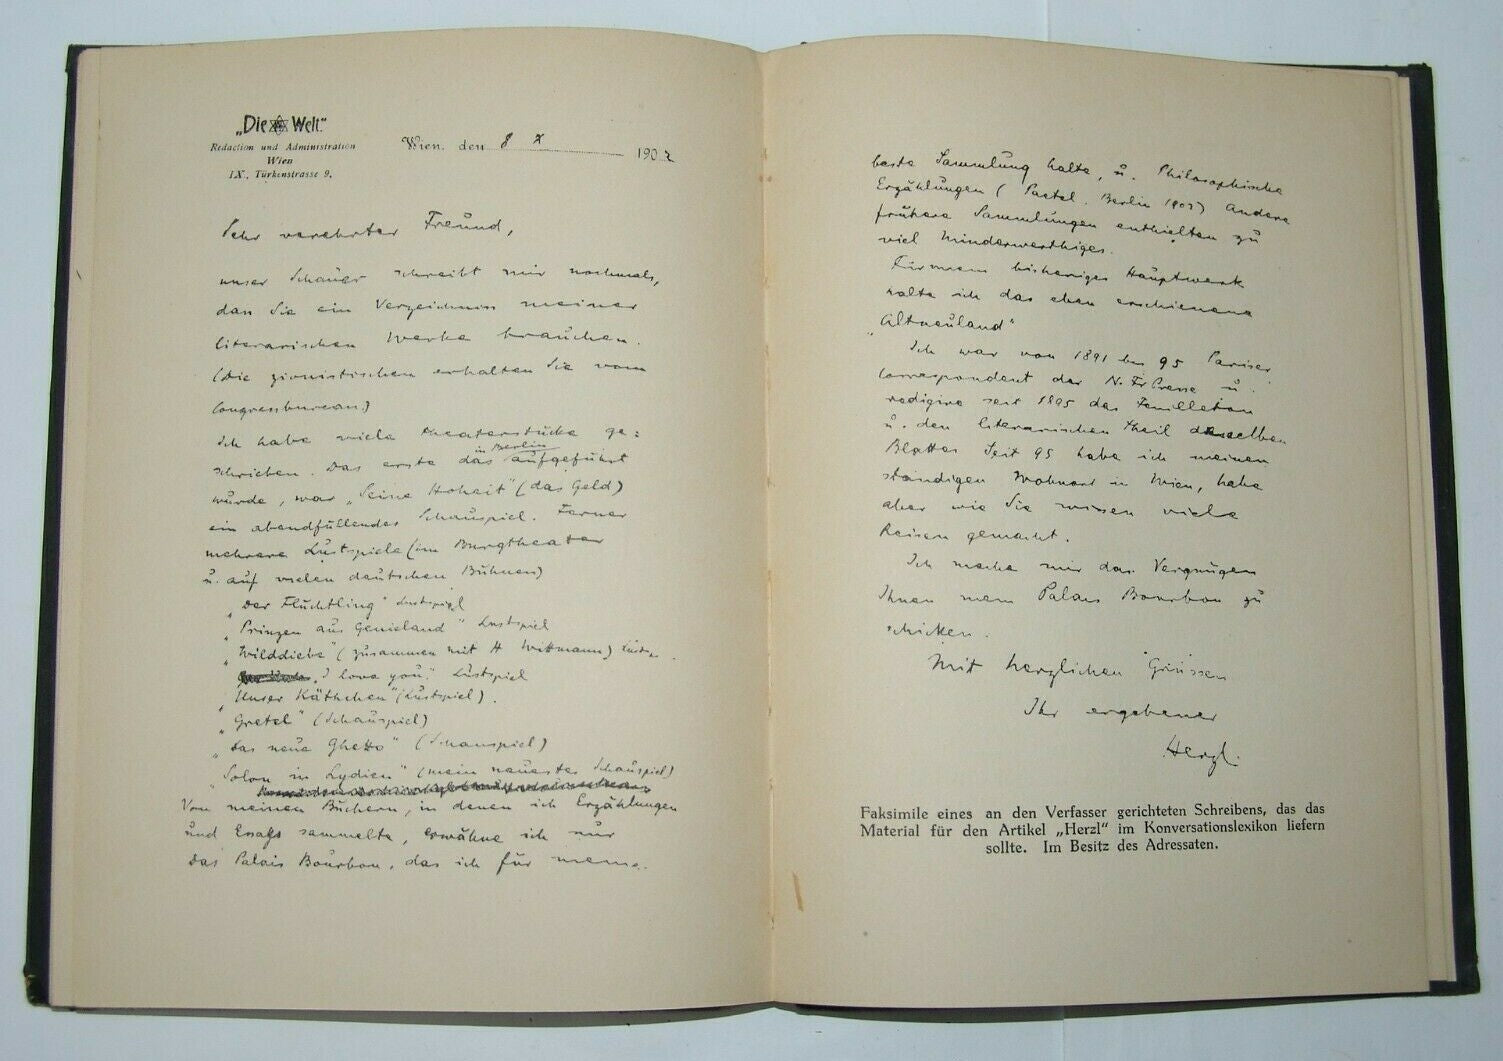 „Die Welt."
Redaction und Administration
Wien
IX. Türkenstrasse 9.
Wien, den 8 X 1902
Sehr verehrter Freund,
unser Schauer schreibt mir nochmals,
dass Sie ein Verzeichniss meiner
literarischen Werke brauchen.
(Die zionistischen erhalten Sie vom
Congressbureau.)
Ich habe viele Theaterstücke ge=
schrieben. Das erste das in Berlin aufgeführt
wurde, war „Seine Hoheit" (das Geld)
ein abendfüllendes Schauspiel. Ferner
mehrere Lustspiele (im Burgtheater
u. auf vielen deutschen Bühnen)
„Der Flüchtling" Lustspiel
„Prinzen aus Genieland" Lustspiel
„Wilddiebe" (zusammen mit H Wittmann)
„I love you." Lustspiel
„Unser Käthchen" (Lustspiel).
„Gretel" (Schauspiel)
„Das neue Ghetto" (Schauspiel)
„Solon in Lydien" (mein neuestes Schauspiel)
Von meinen Büchern, in denen ich Erzählungen
und Essays sammelte, erwähne ich nur
das Palais Bourbon, das ich für meine
beste Sammlung halte, u. Philosophische
Erzählungen (Paetel. Berlin) Andere
frühere Sammlungen enthielten zu
viel Minderwerthiges.
Für mein bisheriges Hauptwerk
halte ich das eben erschienene
„Altneuland"
Ich war von 1891 bis 95 Pariser
Correspondent der N. Fr Presse u.
redigire seit 1895 das Feuilleton
u. den literarischen Theil desselben
Blattes Seit 95 habe ich meinen
ständigen Wohnort in Wien, habe
aber wie Sie wissen viele
Reisen gemacht.
Ich mache mir das Vergnügen
Ihnen mein Palais Bourbon zu
schicken.
Mit herzlichen Grüssen
Ihr ergebener
Herzl.
Faksimile eines an den Verfasser gerichteten Schreibens, das das
Material für den Artikel „Herzl" im Konversationslexikon liefern
sollte. Im Besitz des Adressaten.